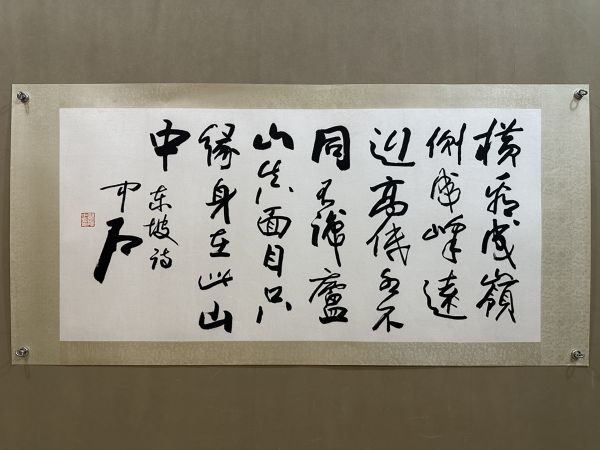 橫看成嶺
側成峰遠
近高低各不
同不識廬
山真面目只
緣身在此山
中
東坡詩
中石